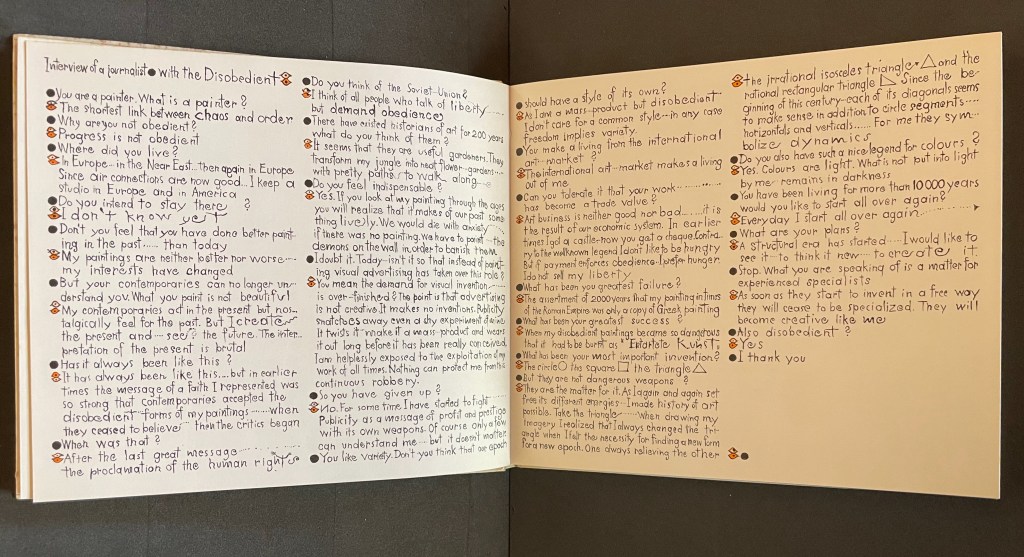 Interview of a journalist with the Disobedient
You are a painter. What is a painter ?
The shortest link between chaos and order
Why are you not obedient?
Progress is not obedient
Where did you live?
In Europe...in the Near East...then again in Europe
Since air connections are now good...I keep a
studio in Europe and in America
Do you intend to stay there ?
I don't know yet
Don't you feel that you have done better paint-
ing in the past..... than today
My paintings are neither better nor worse...
my interests have changed
But your contemporaries can no longer un-
derstand you. What you paint is not beautiful
My contemporaries act in the present but nos...
talgically feel for the past. But I create
the present and...see? the future. The inter...
pretation of the present is brutal
Has it always been like this ?
It has always been like this....but in earlier
times the message of a faith I represented was
so strong that contemporaries accepted the
disobedient forms of my paintings.......when
they ceased to believe... then the critics began
When was that ?
After the last great message..........
the proclamation of the human rights
Do you think of the Soviet-Union?
I think of all people who talk of liberty.....
but demand obedience
There have existed historians of art for 200 years
what do you think of them ?
It seems that they are useful gardeners. They
transform my jungle into neat flower-gardens....
with pretty paths to walk along
Do you feel indispensable ?
Yes. If you look at my painting through the ages
you will realize that it makes of our past some
thing lively. We would die with anxiety
if there was no painting. We have to paint the
demons on the wall in order to banish them
I doubt it. Today...isn't it so that instead of paint-
ing visual advertising has taken over this role ?
You mean the demand for visual invention
is over-finished? The point is that advertising
is not creative. It makes no inventions. Publicity
snatches away even a dry experiment of mine
It twists it ... make it a mass-product and wears
it out long before it has been really conceived.
I am helplessly exposed to the exploitation of my
work of all times. Nothing can protect me from this
continuous robbery.
So you have given up ?
No. For some time I have started to fight.....
Publicity as a message of profit and prestige
with its own weapons. Of course only a few
can understand me... but it doesn't matter
You like variety. Don't you think that our epoch
should have a style of its own?
As I am a mass-product but disobedient
I don't care for a common style...in any case
freedom implies variety.
You make a living from the international
art-market ?
The international art-market makes a living
out of me
Can you tolerate it that your work............
has become a trade value ?
Art business is neither good nor bad......it is
the result of our economic system. In earlier
times I got a castle...now you get a cheque. Contra...
ry to the wellknown legend I don't like to be hungry
But if payment enforces obedience I prefer hunger.
I do not sell my liberty
What has been your greatest failure?
The assertment of 2000 years that my painting in times
of the Roman Empire was only a copy of Greek painting
What has been your greatest success ?
When my disobedient paintings became so dangerous
that it had to be burnt as "Entartete Kunst"
What has been your most important invention?
The circle ○ the square □ the triangle △
But they are not dangerous weapons ?
They are the matter for it. As I again and again set
free its different energies. I made history of art
possible. Take the triangle...... When drawing my
imagery I realized that I always changed the tri-
angle when I felt the necessity for finding a new form
for a new epoch. One always relieving the other
the irrational isosceles triangle △ and the
rational rectangular triangle Since the be-
ginning of this century...each of its diagonals seems
to make sense in addition to circle segments....
horizontals and verticals...... For me they sym...
bolize dynamics
Do you also have such a nice legend for colours ?
Yes. Colours are light. What is not put into light
by me...remains in darkness
You have been living for more than 10000 years
would you like to start all over again?
Everyday I start all over again
What are your plans ?
A structural era has started.....I would like to
see it...to think it new...to create it.
Stop. What you are speaking of is a matter for
experienced specialists
As soon as they start to invent in a free way
they will cease to be specialized. They will
become creative like me
Also disobedient ?
Yes
I thank you